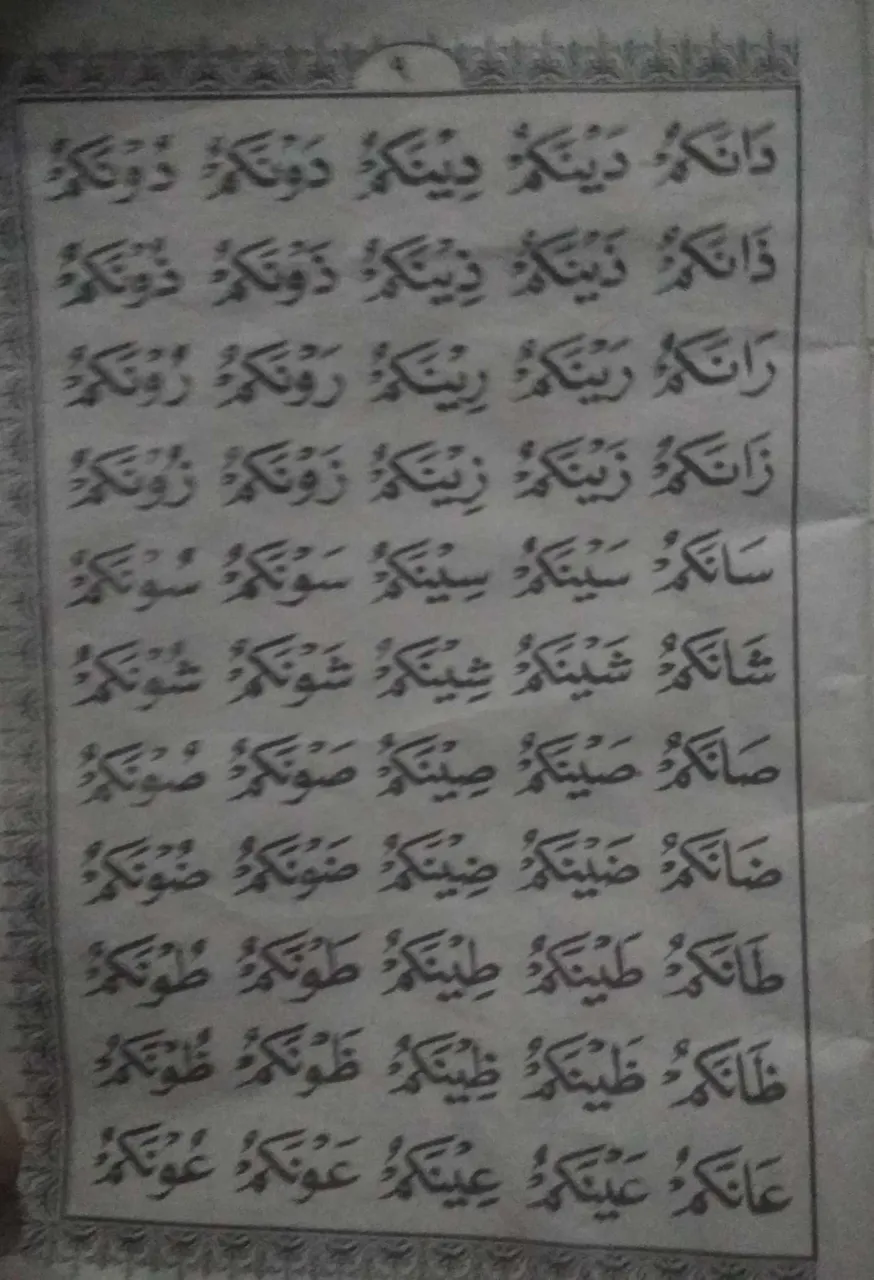 ٩
دَانَكُمْ دَيْنَكُمْ دِيْنَكُمْ دَوْنَكُمْ دُوْنَكُمْ
ذَانَكُمْ ذَيْنَكُمْ ذِيْنَكُمْ ذَوْنَكُمْ ذُوْنَكُمْ
رَانَكُمْ رَيْنَكُمْ رِيْنَكُمْ رَوْنَكُمْ رُوْنَكُمْ
زَانَكُمْ زَيْنَكُمْ زِيْنَكُمْ زَوْنَكُمْ زُوْنَكُمْ
سَانَكُمْ سَيْنَكُمْ سِيْنَكُمْ سَوْنَكُمْ سُوْنَكُمْ
شَانَكُمْ شَيْنَكُمْ شِيْنَكُمْ شَوْنَكُمْ شُوْنَكُمْ
صَانَكُمْ صَيْنَكُمْ صِيْنَكُمْ صَوْنَكُمْ صُوْنَكُمْ
ضَانَكُمْ ضَيْنَكُمْ ضِيْنَكُمْ ضَوْنَكُمْ ضُوْنَكُمْ
طَانَكُمْ طَيْنَكُمْ طِيْنَكُمْ طَوْنَكُمْ طُوْنَكُمْ
ظَانَكُمْ ظَيْنَكُمْ ظِيْنَكُمْ ظَوْنَكُمْ ظُوْنَكُمْ
عَانَكُمْ عَيْنَكُمْ عِيْنَكُمْ عَوْنَكُمْ عُوْنَكُمْ